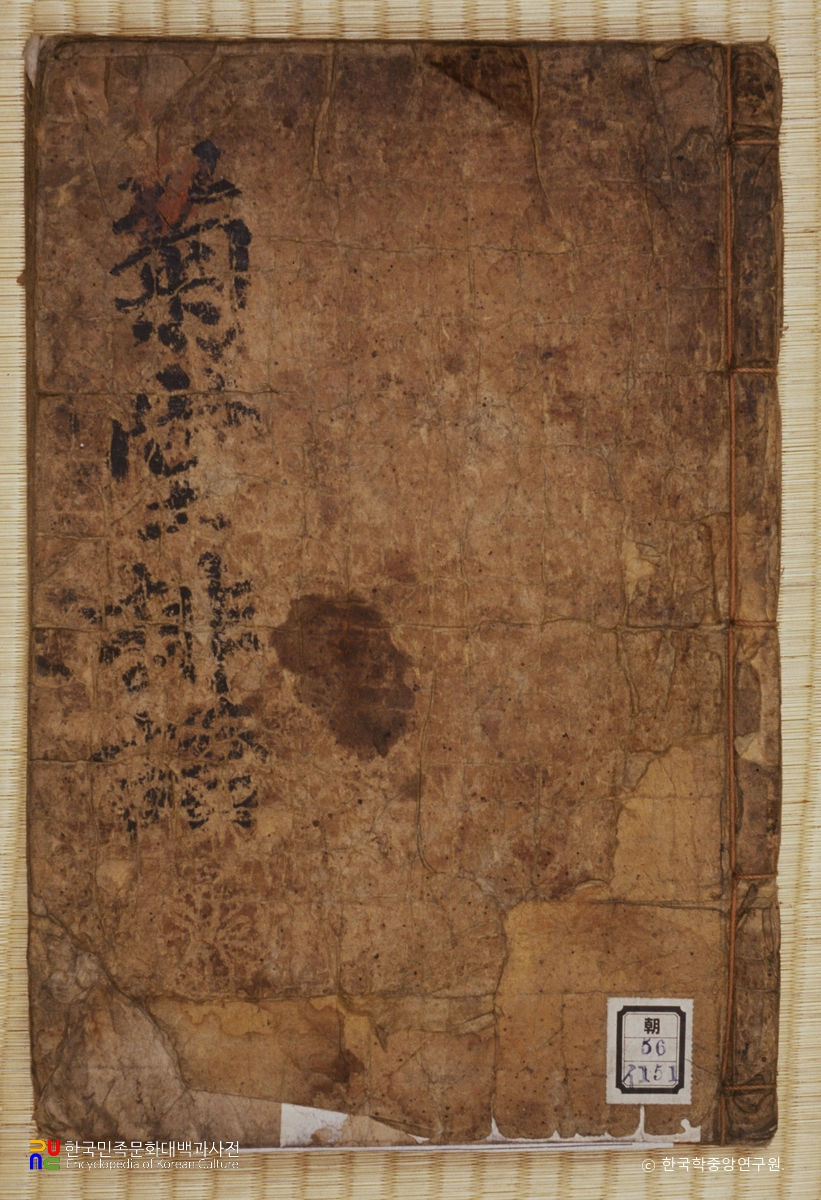 菊堂排語
朝
56
151
한국민족문화대백과사전
Encyclopedia of Korean Culture
© 한국학중앙연구원